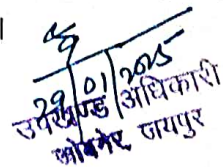 29/01/2025
उपखण्ड अधिकारी
जोबनेर, जयपुर